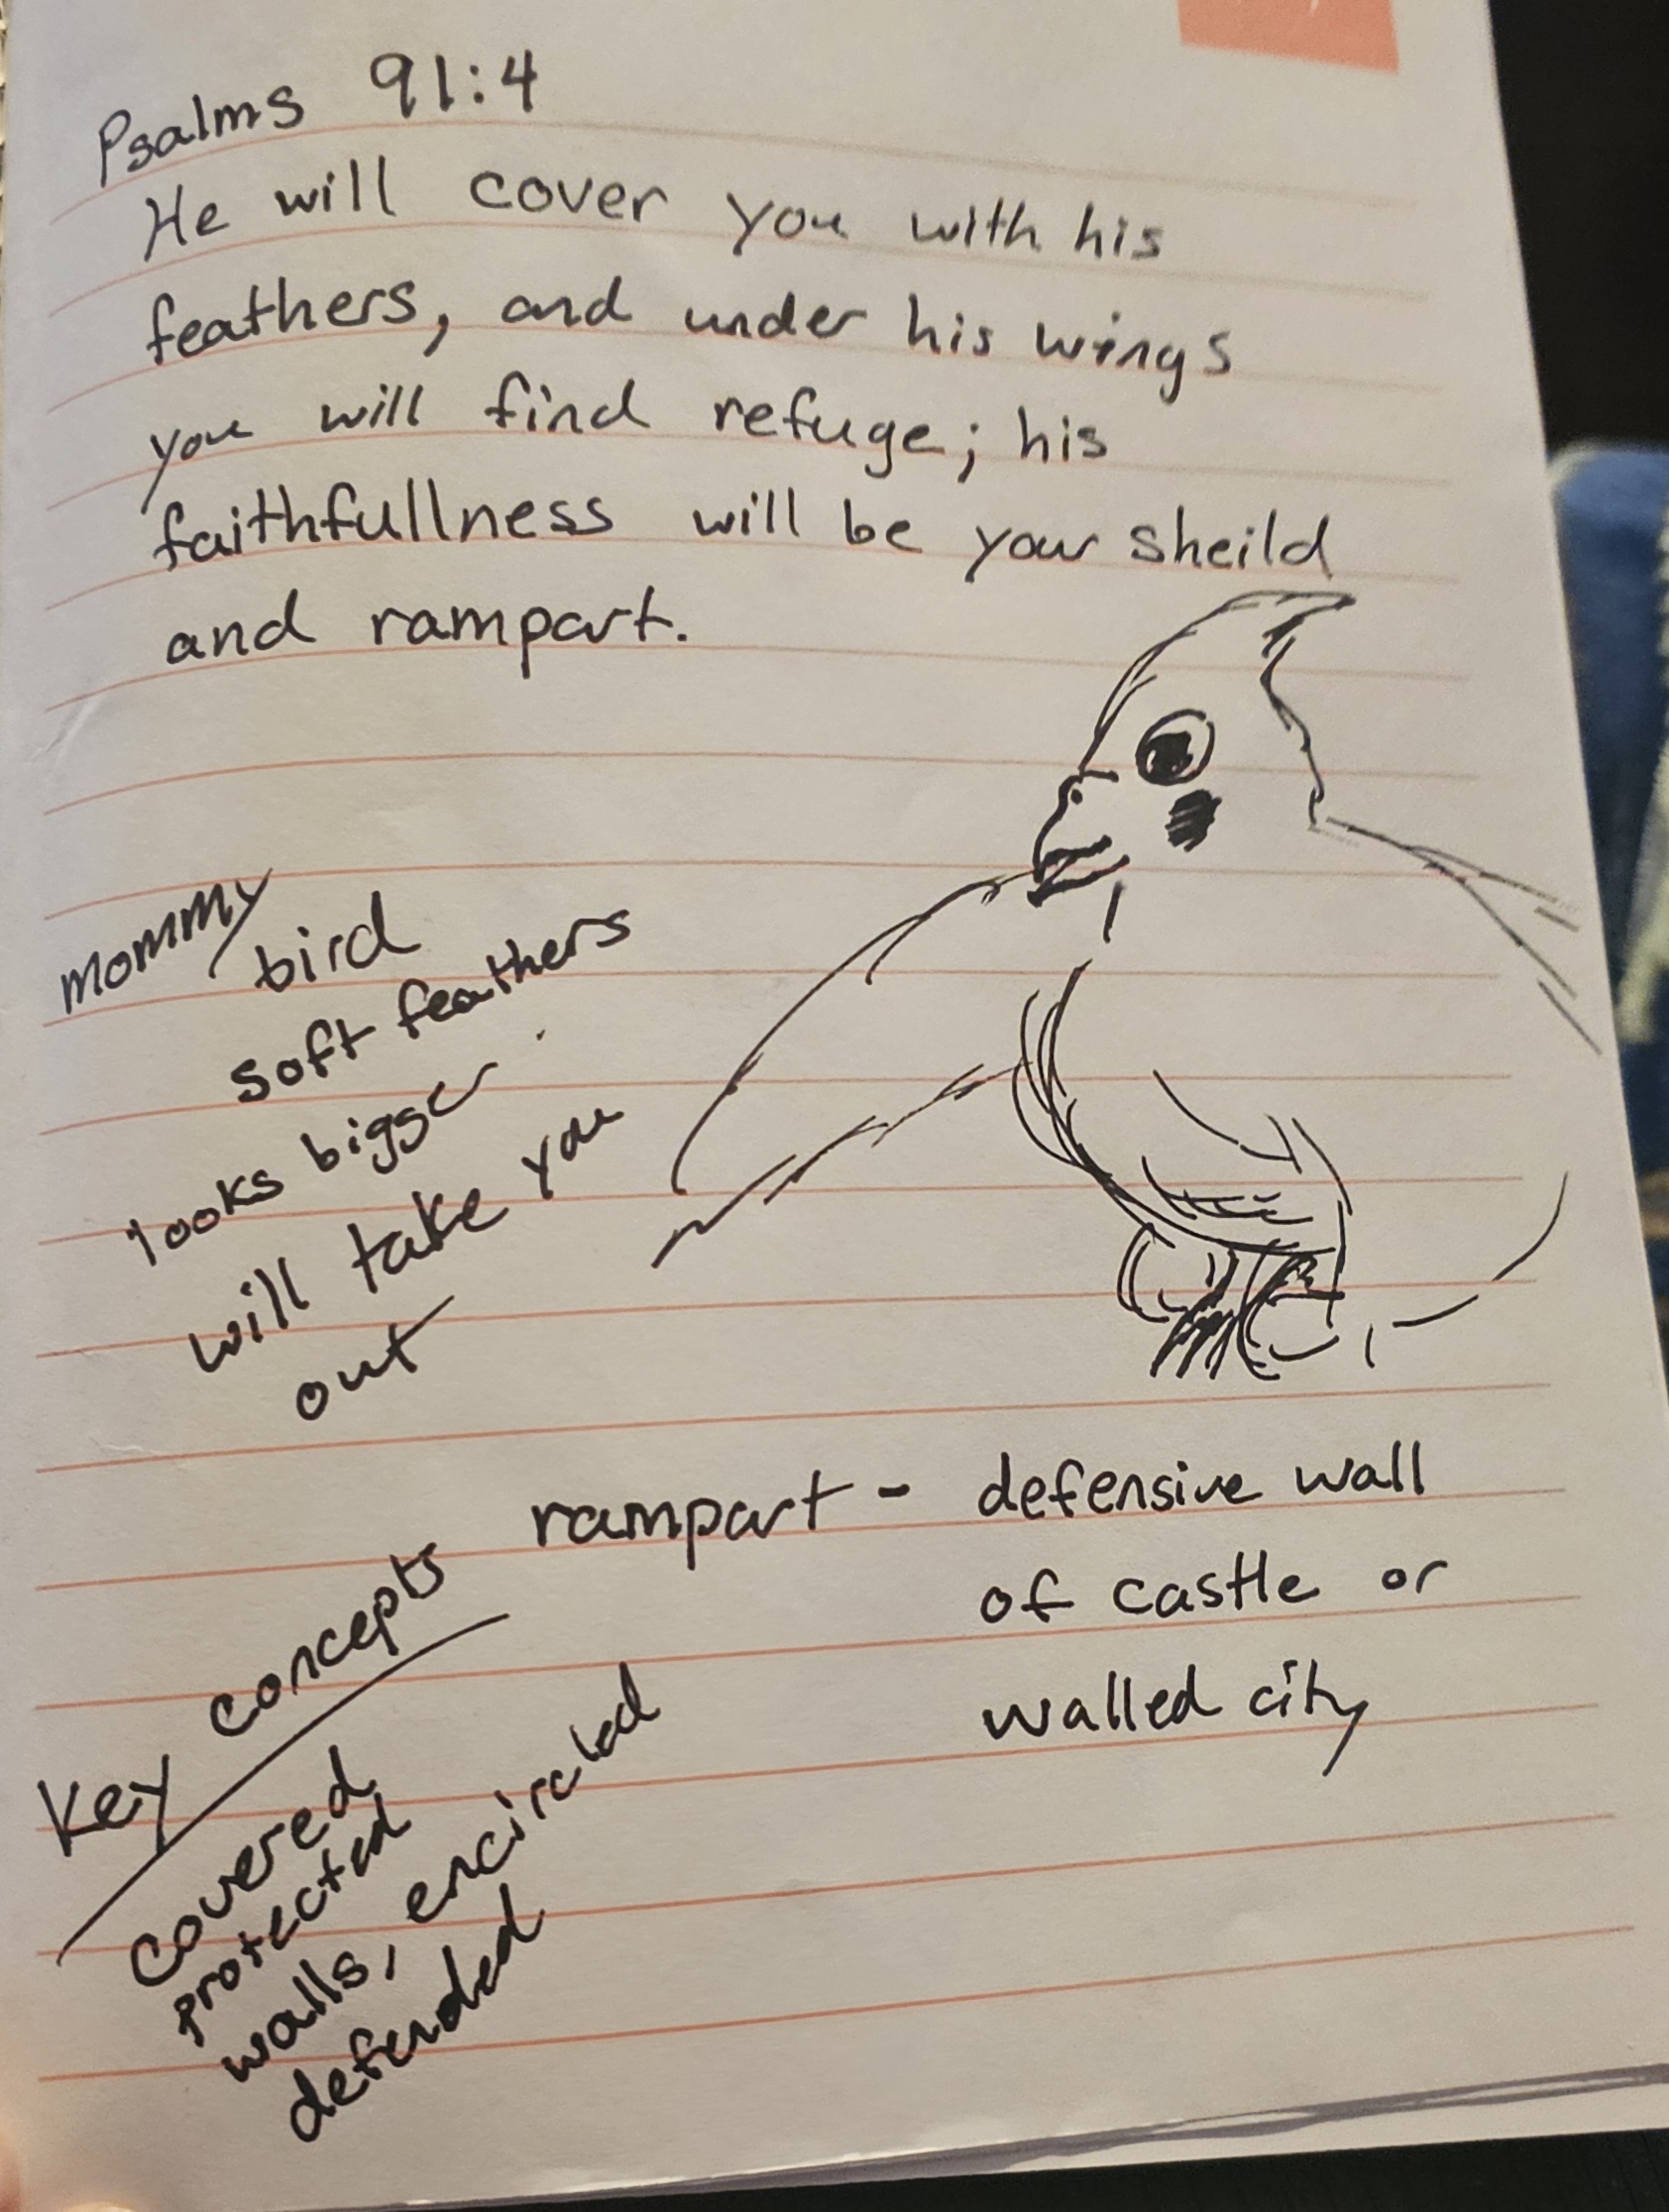 Psalms 91:4
He will cover you with his
feathers, and under his wings
you will find refuge; his
faithfullness will be your sheild
and rampart.
mommy
bird
soft feathers
looks bigger
will take you
out
rampart - defensive wall
of castle or
walled city
Key concepts
covered
protected
walls, encircled
defended